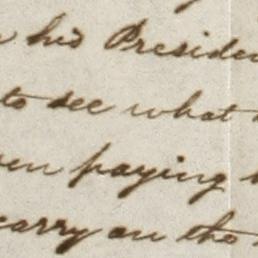 his Presiden
to see what
en paying
carry on the